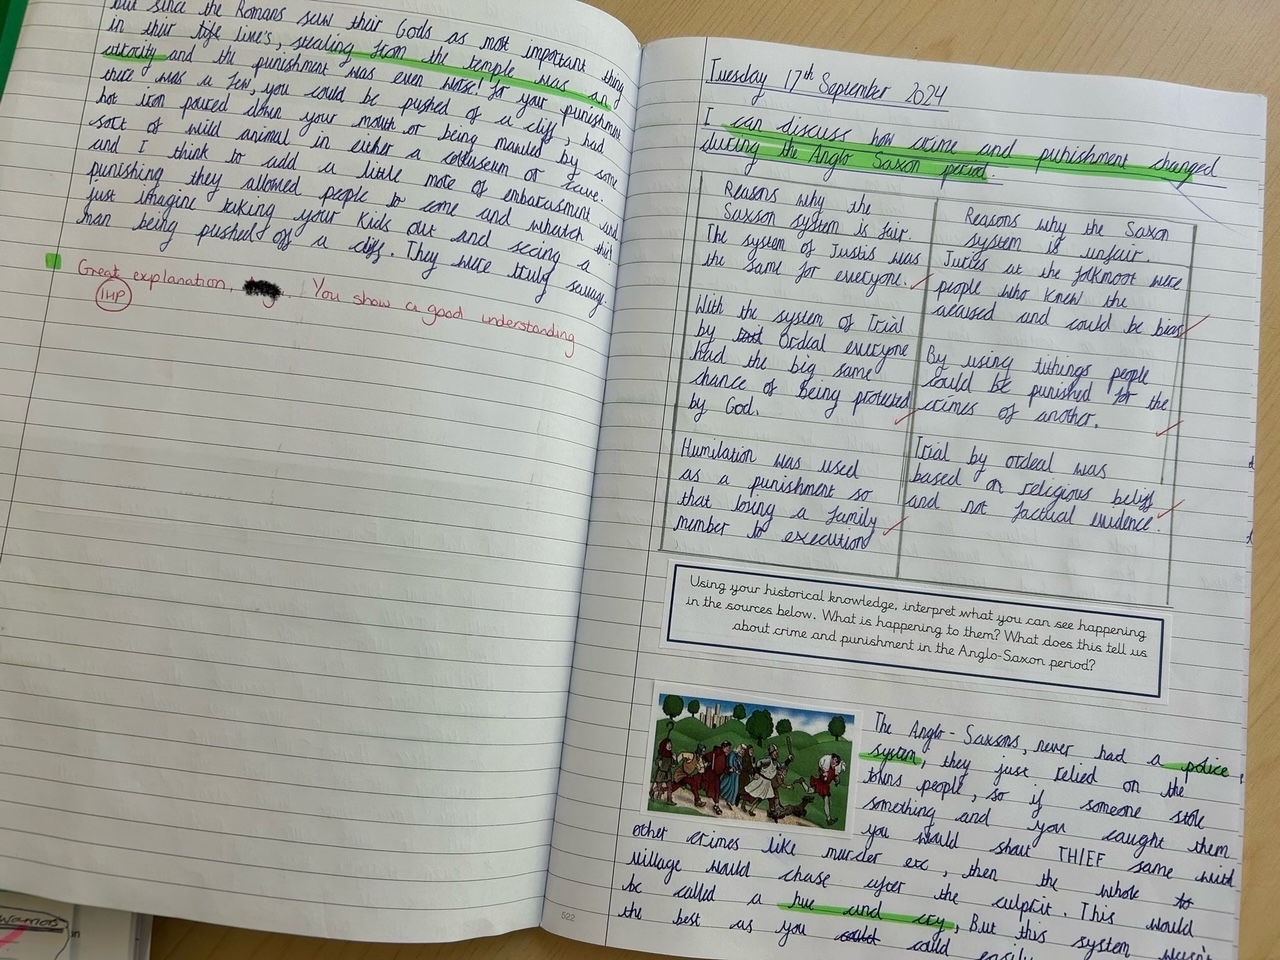 but since the Romans saw their Gods as most important thing
in their life line's, stealing from the temple was an
atrocity and the punishment was even worse! for your punishment
there was a few, you could be pushed of a cliff, had
hot iron poured down your mouth or being manuled by some
sort of wild animal in either a colluseum or cave.
and I think to add a little more of embarasment and
punishing they allowed people to come and whatch this!
just imagine taking your kids out and seeing a
man being pushed off a cliff. They were truly savage.
Great explanation, . You show a good understanding
1HP
Tuesday 17th September 2024
I can discuss how crime and punishment changed
during the Anglo Saxon period.
Reasons why the
Saxson system is fair.
The system of Justis was
the same for everyone.
With the system of Trial
by Ordeal everyone
had the big same
chance of being protected
by God.
Humilation was used
as a punishment so
that losing a family
member to execution
Reasons why the Saxon
system is unfair.
Juries at the folkmoot were
people who knew the
acused and could be bias
By using tithings people
could be punished for the
crimes of another.
Trial by ordeal was
based on religious beliefs
and not factual evidence.
Using your historical knowledge, interpret what you can see happening
in the sources below. What is happening to them? What does this tell us
about crime and punishment in the Anglo-Saxon period?
The Anglo-Saxsons, never had a police
system, they just relied on the
towns people, so if someone stole
something and you caught them
you would shout THIEF same with
other crimes like murder etc, then the whole to
village would chase after the culprit. This would
be called a hue and cry, But this system wasn't
the best as you could could easily
522
Warriors